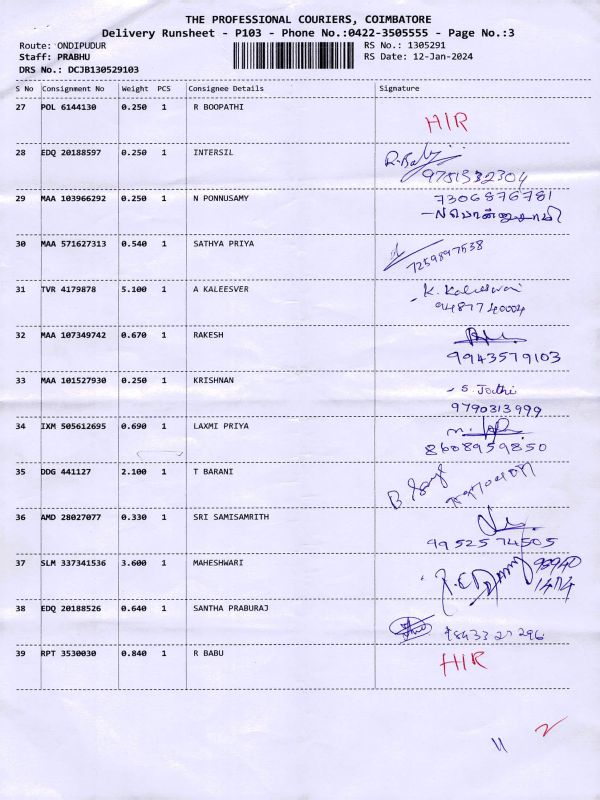 THE PROFESSIONAL COURIERS, COIMBATORE
Delivery Runsheet - P103 - Phone No.:0422-3505555 - Page No.:3
Route: ONDIPUDUR RS No.: 1305291
Staff: PRABHU RS Date: 12-Jan-2024
DRS No.: DCJB130529103
S No Consignment No Weight PCS Consignee Details Signature
27 POL 6144130 0.250 1 R BOOPATHI
H/R
28 EDQ 20188597 0.250 1 INTERSIL R. Babu
9751332304
29 MAA 103966292 0.250 1 N PONNUSAMY 7306876781
30 MAA 571627313 0.540 1 SATHYA PRIYA
7259897538
31 TVR 4179878 5.100 1 A KALEESVER K. Kaleeswari
9487740004
32 MAA 107349742 0.670 1 RAKESH
9943579103
33 MAA 101527930 0.250 1 KRISHNAN
S. Jothi
9790313999
34 IXM 505612695 0.690 1 LAXMI PRIYA
8608959850
35 DDG 441127 2.100 1 T BARANI
36 AMD 28027077 0.330 1 SRI SAMISAMRITH
9952574505
37 SLM 337341536 3.600 1 MAHESHWARI
38 EDQ 20188526 0.640 1 SANTHA PRABURAJ
39 RPT 3530030 0.840 1 R BABU
H/R
11 2